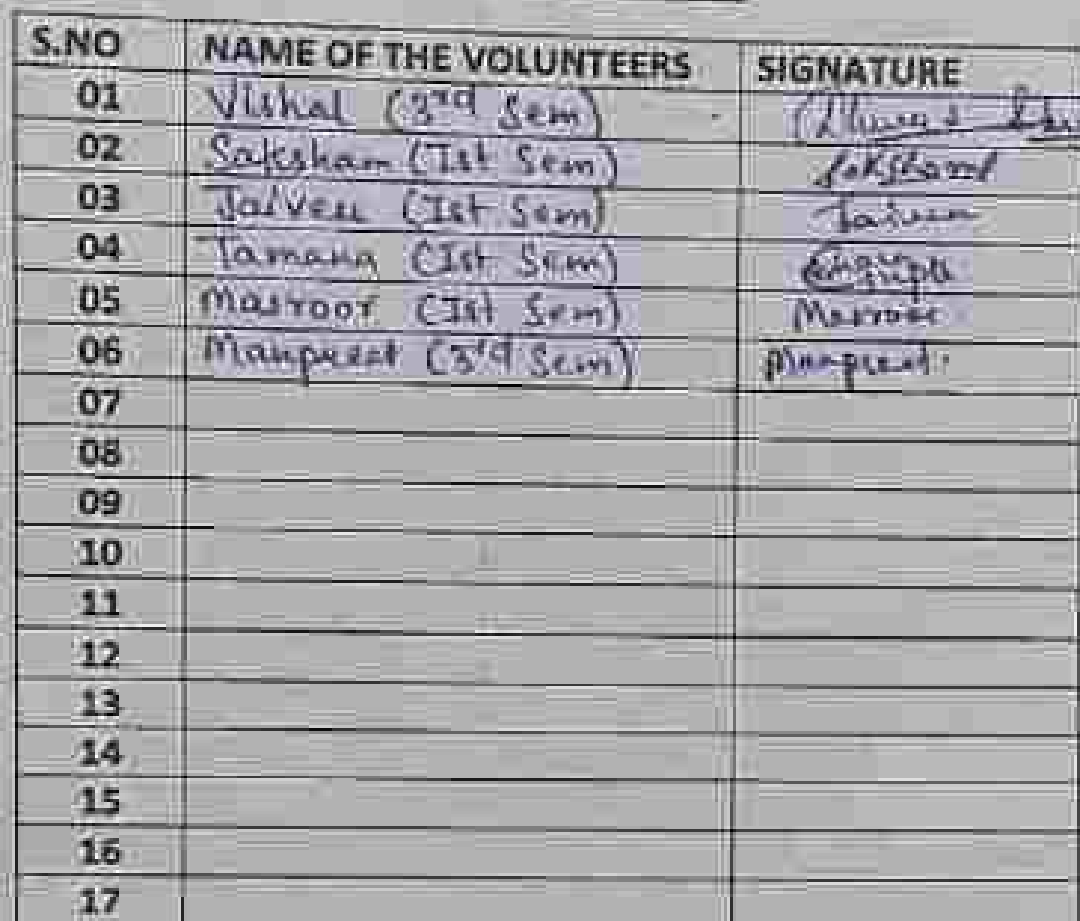 S.NO NAME OF THE VOLUNTEERS SIGNATURE
01 Vishal (3rd Sem)
02 Saksham (Ist Sem) Saksham
03 (Ist Sem)
04 Tamana (Ist Sem)
05 Masroor (Ist Sem) Masroor
06 Manpreet (3rd Sem) Manpreet
07
08
09
10
11
12
13
14
15
16
17